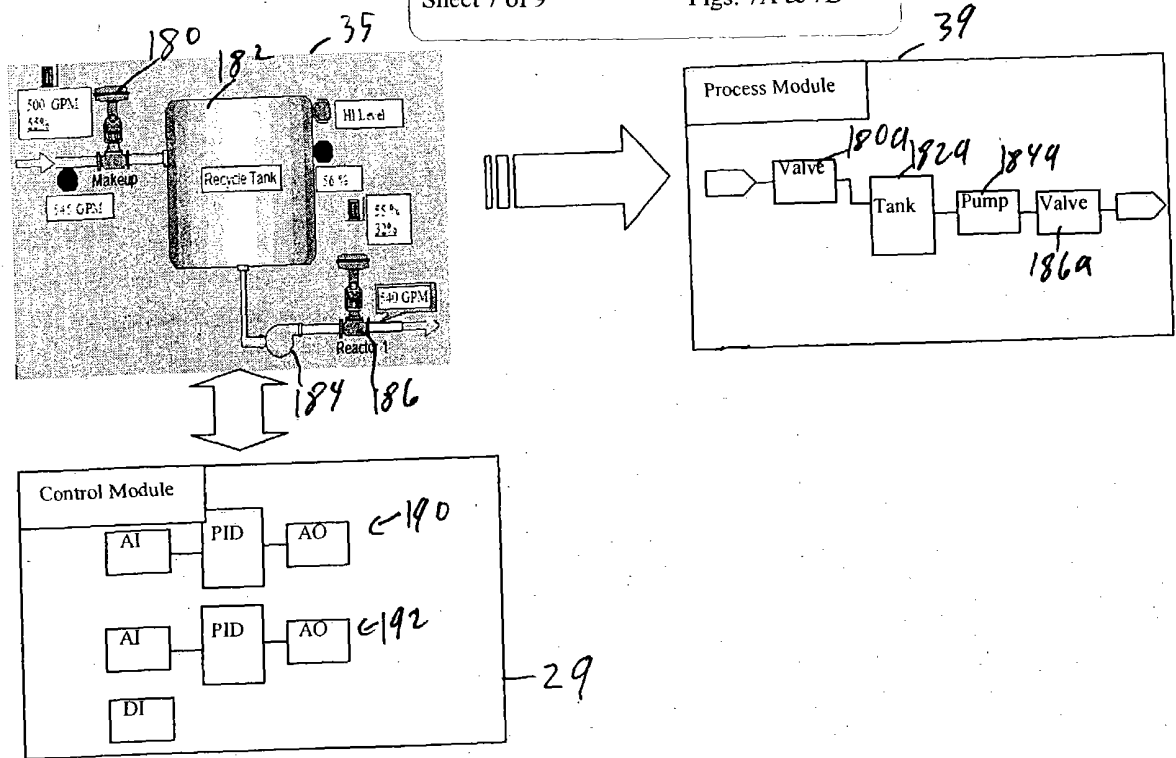 Sheet 7 of 9 Figs. 7A & 7B
180
182
35
39
500 GPM
55%
HI Level
Makeup
Recycle Tank
56 %
545 GPM
55%
32%
540 GPM
Reactor 1
184
186
Process Module
180a
182a
184a
Valve
Tank
Pump
Valve
186a
Control Module
AI
PID
AO
190
AI
PID
AO
192
DI
29